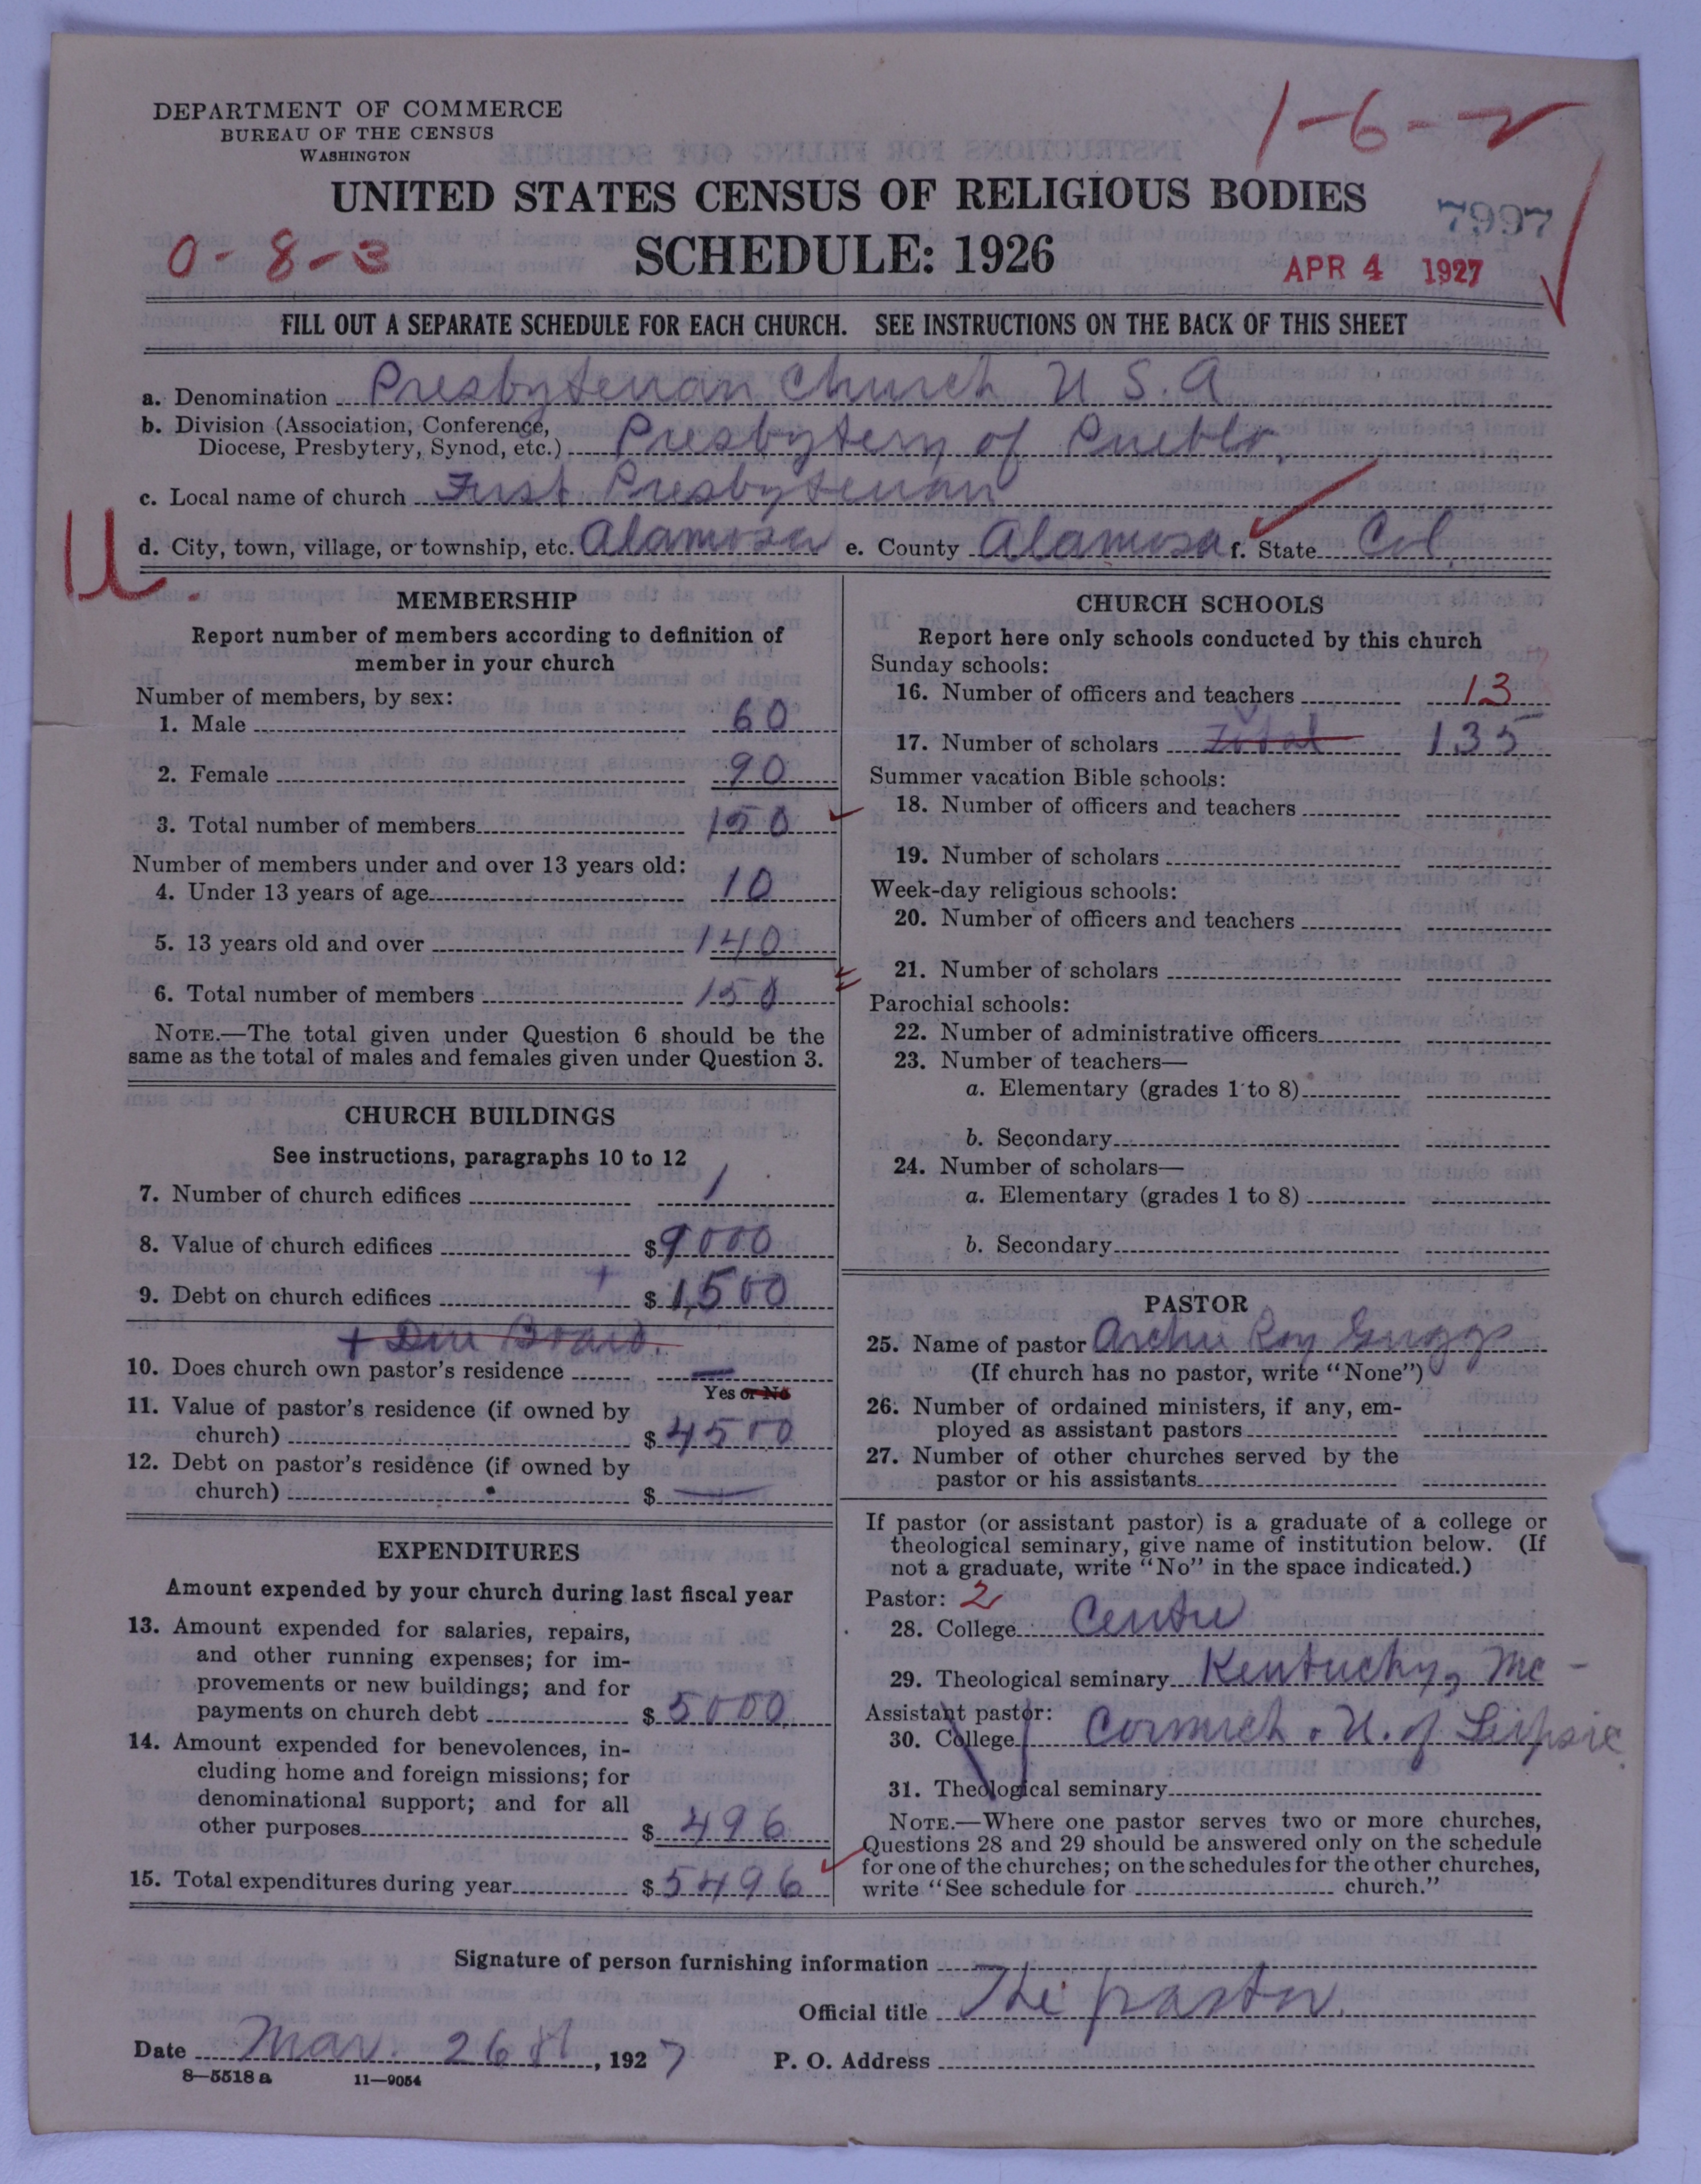 1-6-2
DEPARTMENT OF COMMERCE
BUREAU OF THE CENSUS
WASHINGTON
UNITED STATES CENSUS OF RELIGIOUS BODIES
7997
0-8-3
SCHEDULE: 1926
APR 4 1927
FILL OUT A SEPARATE SCHEDULE FOR EACH CHURCH. SEE INSTRUCTIONS ON THE BACK OF THIS SHEET
a. Denomination Presbyterian Church U S. A
b. Division (Association, Conference,
Diocese, Presbytery, Synod, etc.) Presbytery of Pueblo.
c. Local name of church First Presbyterian
d. City, town, village, or township, etc. Alamosa e. County Alamosa f. State Col.
U.
MEMBERSHIP
Report number of members according to definition of
member in your church
Number of members, by sex:
1. Male 60
2. Female 90
3. Total number of members 150
Number of members under and over 13 years old:
4. Under 13 years of age 10
5. 13 years old and over 140
6. Total number of members 150
NOTE.—The total given under Question 6 should be the
same as the total of males and females given under Question 3.
CHURCH BUILDINGS
See instructions, paragraphs 10 to 12
7. Number of church edifices 1
8. Value of church edifices $ 9000
9. Debt on church edifices $ 1,500
+ Due Board.
10. Does church own pastor's residence —
Yes or No
11. Value of pastor's residence (if owned by
church) $ 4500
12. Debt on pastor's residence (if owned by
church) $ —
EXPENDITURES
Amount expended by your church during last fiscal year
13. Amount expended for salaries, repairs,
and other running expenses; for im-
provements or new buildings; and for
payments on church debt $ 5000
14. Amount expended for benevolences, in-
cluding home and foreign missions; for
denominational support; and for all
other purposes $ 496
15. Total expenditures during year $ 5496
CHURCH SCHOOLS
Report here only schools conducted by this church
Sunday schools:
16. Number of officers and teachers 13
17. Number of scholars Total 135
Summer vacation Bible schools:
18. Number of officers and teachers
19. Number of scholars
Week-day religious schools:
20. Number of officers and teachers
21. Number of scholars
Parochial schools:
22. Number of administrative officers
23. Number of teachers—
a. Elementary (grades 1 to 8)
b. Secondary
24. Number of scholars—
a. Elementary (grades 1 to 8)
b. Secondary
PASTOR
25. Name of pastor Archie Roy Griggs
(If church has no pastor, write "None")
26. Number of ordained ministers, if any, em-
ployed as assistant pastors
27. Number of other churches served by the
pastor or his assistants
If pastor (or assistant pastor) is a graduate of a college or
theological seminary, give name of institution below. (If
not a graduate, write "No" in the space indicated.)
Pastor: 2
28. College Centre
29. Theological seminary Kentucky, Mc-
Assistant pastor:
30. College Cormick. U. of Leipsic
31. Theological seminary
NOTE.—Where one pastor serves two or more churches,
Questions 28 and 29 should be answered only on the schedule
for one of the churches; on the schedules for the other churches,
write "See schedule for church."
Signature of person furnishing information
Official title The pastor.
Date Mar. 26th, 1927 P. O. Address
8—5518 a 11—9054